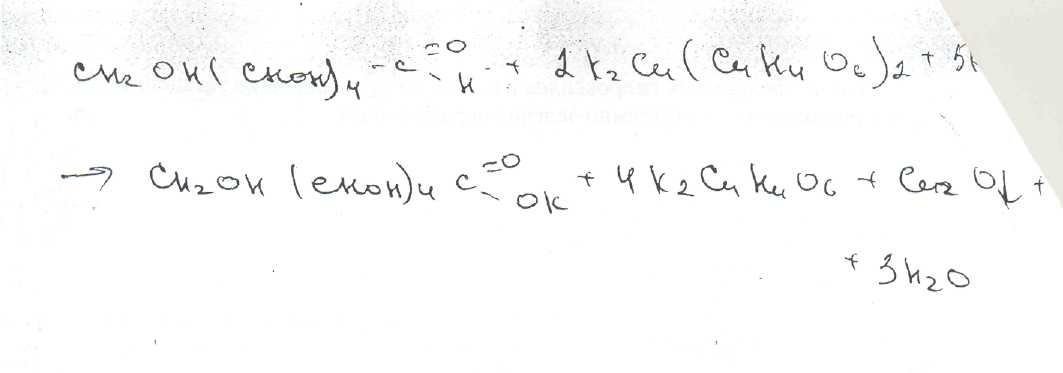 CH2OH(CHOH)4-C=O-H + 2K2Cu(C4H4O6)2 + 5K
→ CH2OH(CHOH)4C=O-OK + 4K2C4H4O6 + Cu2O↓ +
+ 3H2O